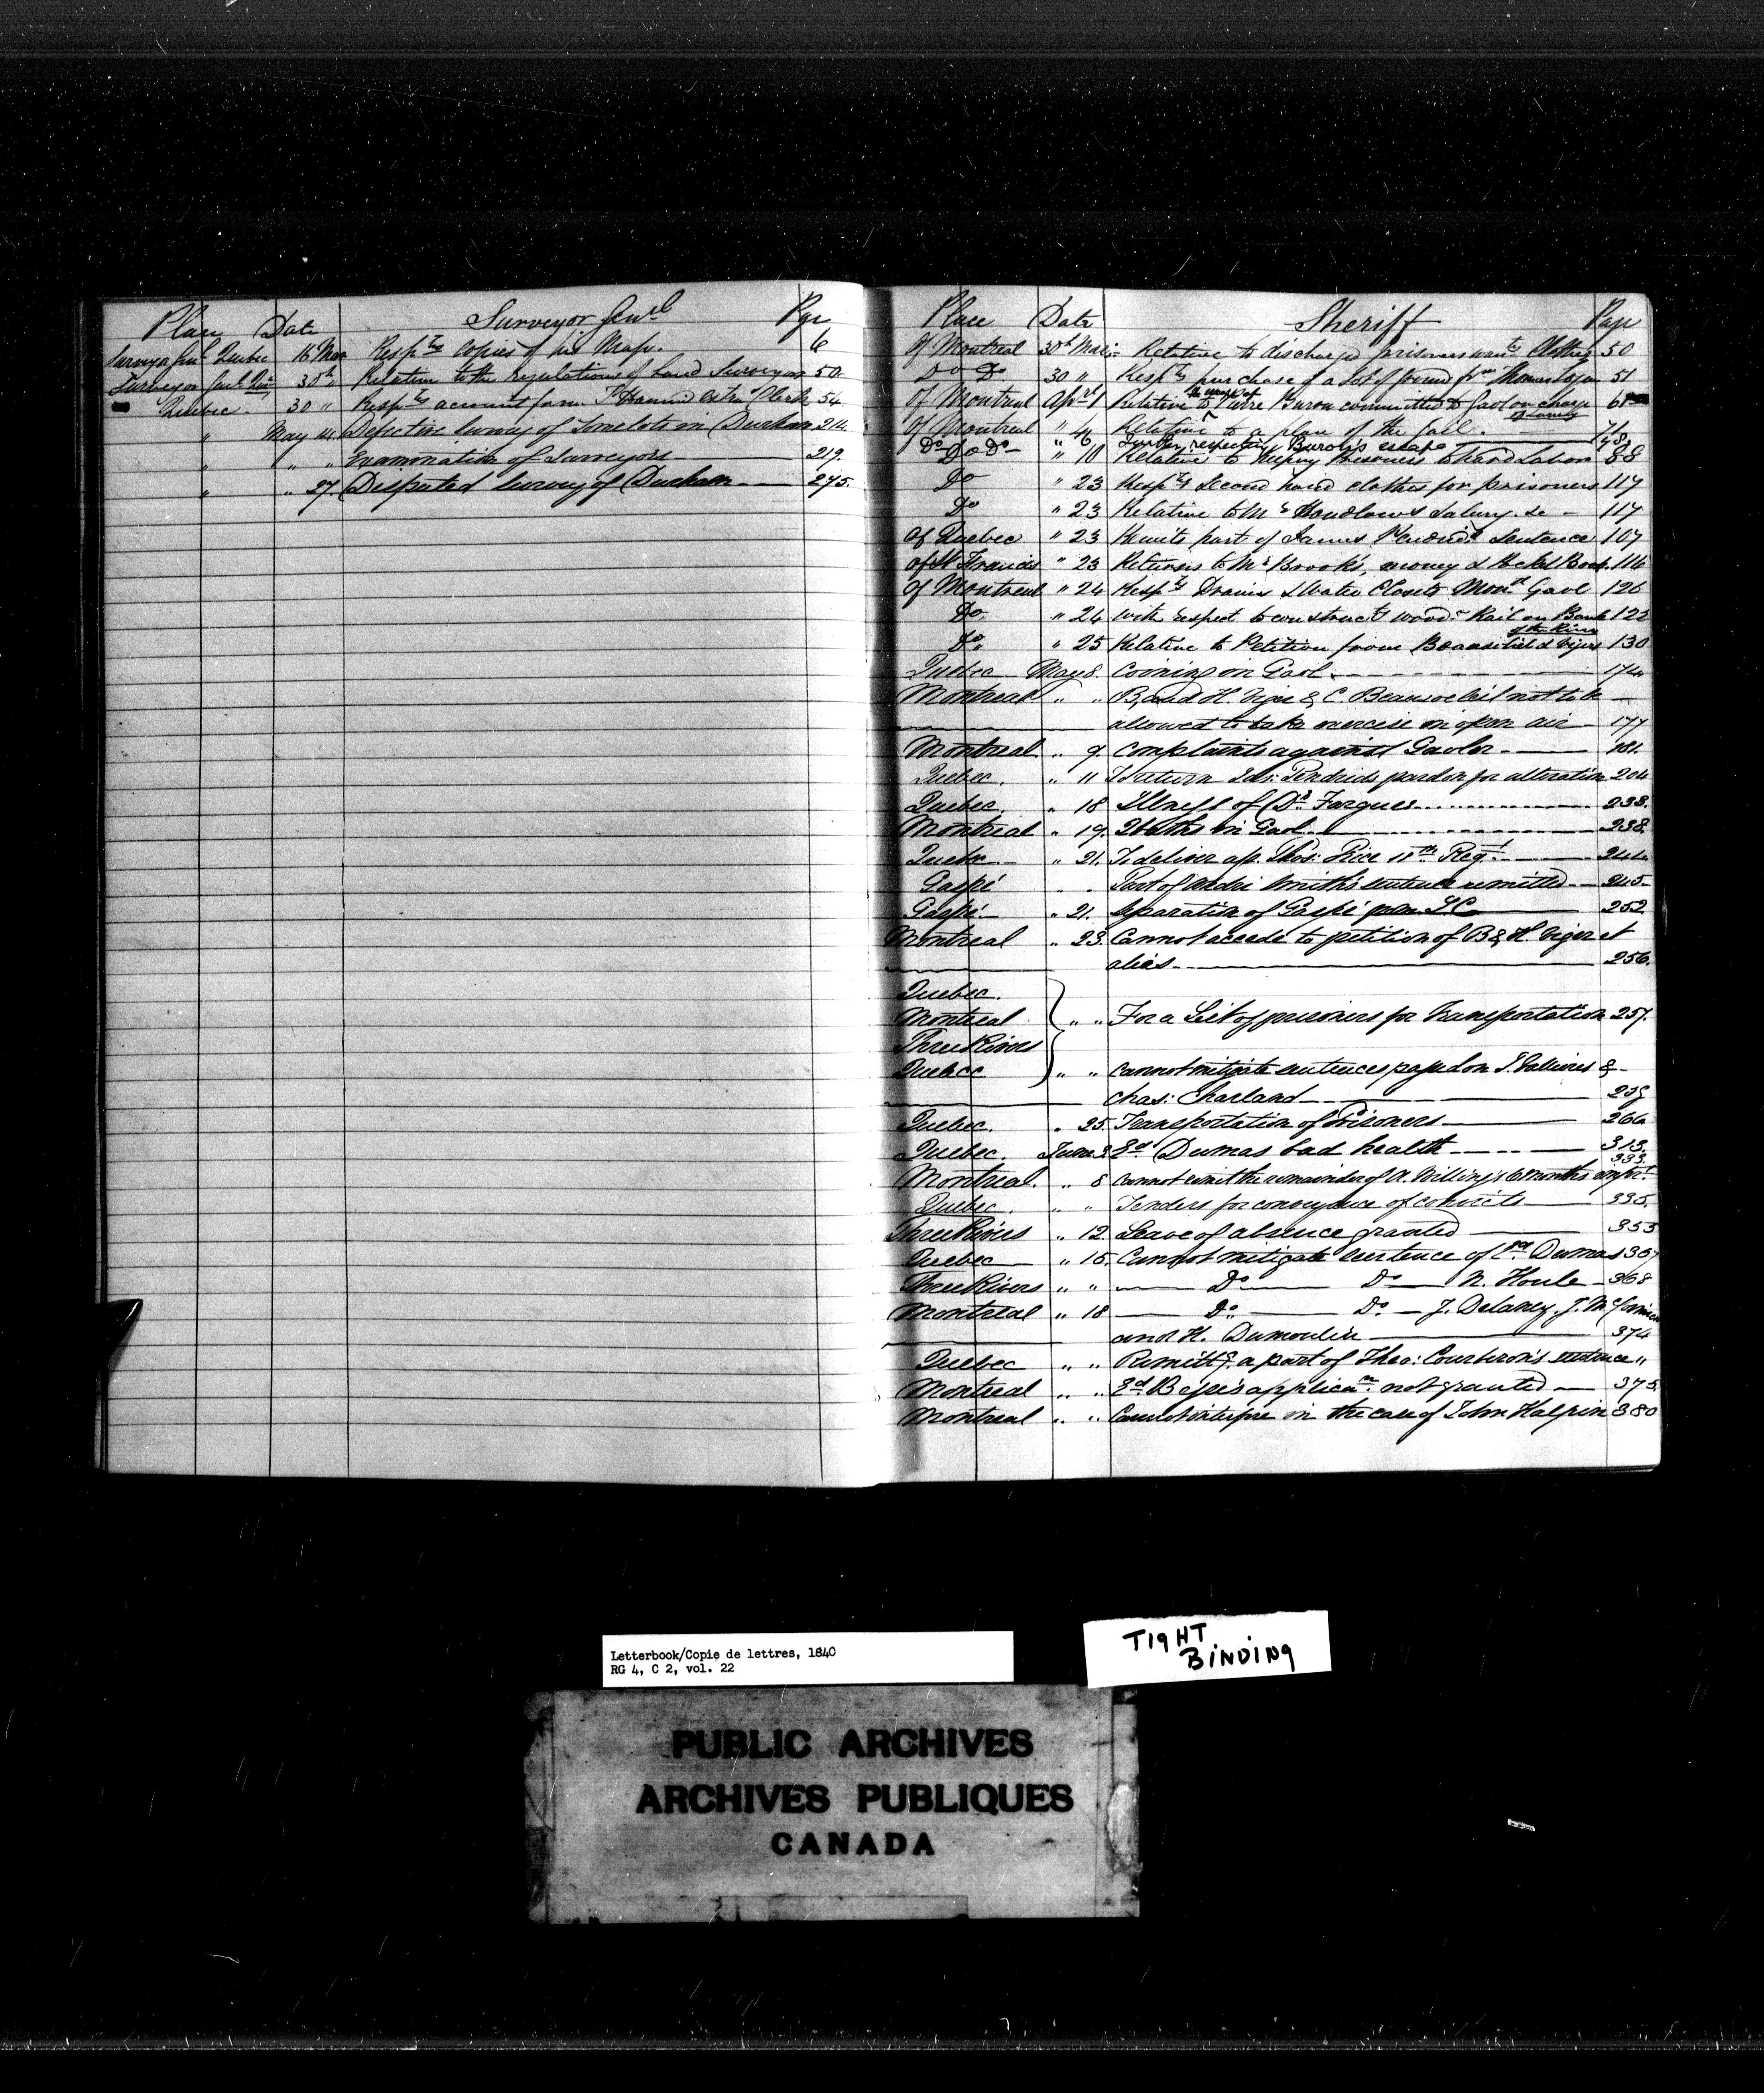 Place Date Surveyor Genl Page
Surveyor Genl Quebec 16 Mar Respts copies of his Map. 6
Surveyor Genl 30th " Relation to the regulations of Land Surveyors 50
Quebec. 30 " Respts account from Clerk 54
" May 14 Defective Survey of Some lots in Durham 214
" " " Examination of Surveyors 219.
" " 27. Disputed Survey of Durham 275.
Place Date Sheriff Page
Of Montreal 30th Mar: Relative to discharged prisoners wants Clothes 50
Do Do 30 " Respts purchase of a Lot of ground fm Thomas 51
the escape of
Of Montreal Apl 1 Relative to Burow committed to Gaol on charge 61
Of Montreal " 4 Relative to a plan of the Gaol. 71
Do " 6 Further respecting Burow's escape 78
Do Do " 10 Relative to keeping Prisoners to hard Labor 88
Do " 23 Respts Second hand clothes for prisoners 117
Do " 23 Relative to Mr Salary &c 117
Of Quebec " 23 Remits part of James Sentence 107
Of St Francis " 23 Returns to Mr Brooks, money & Pocket Book. 116
Of Montreal " 24 Respts Drains & Water Closets Monl Gaol 126
Do. " 24 with respect to construct wood Rail on Bank 122
of the River
Do. " 25 Relative to Petition from Beausoleil & Viger 130
Quebec May 8. Coining in Gaol. 174
Montreal " " B, and H. Viger & C. Beausoleil not to be
allowed to take exercise in open air 177
Montreal. " 9. Complaints against Gaoler. 181.
Quebec. " 11 To return Jas: Kendrick's pardon for alteration 204
Quebec. " 18 Illness of Dr. Fargues 238.
Montreal " 19. Deaths in Gaol 238.
Quebec " 21. To deliver up Thos: Price 11th Regt. 244.
Gaspé " " Part of André Smith's sentence remitted 245.
Gaspé " 21. Separation of Gaspé from L C 252
Montreal " 23. Cannot accede to petition of B & H. Viger et
alias 256.
Quebec.
Montreal " " For a List of prisoners for Transportation 257.
Three Rivers
Quebec " " Cannot mitigate sentences passed on &
Chas: Charland 259
Quebec. " 25. Transportation of Prisoners 266
Quebec. June 3. Ed Dumas bad health 313.
Montreal. " 8 Cannot remit the remainder of A. Willing's 6 months impt. 333.
Quebec. " " Tenders for conveyance of convicts 335.
Three Rivers " 12 Leave of absence granted 353
Quebec " 15. Cannot mitigate sentence of Ed Dumas 367
Three Rivers " " Do Do N. Houle 368
Montreal " 18 Do Do J. Delaney, J.
and H. Dumoulin 374
Quebec " " Remittg. a part of Theo: Courberon's sentence "
Montreal " " applican. not granted 375.
Montreal " " Cannot interfere in the case of John Halpin 380
Letterbook/Copie de lettres, 1840
RG 4, C 2, vol. 22
TIGHT
BINDING
PUBLIC ARCHIVES
ARCHIVES PUBLIQUES
CANADA